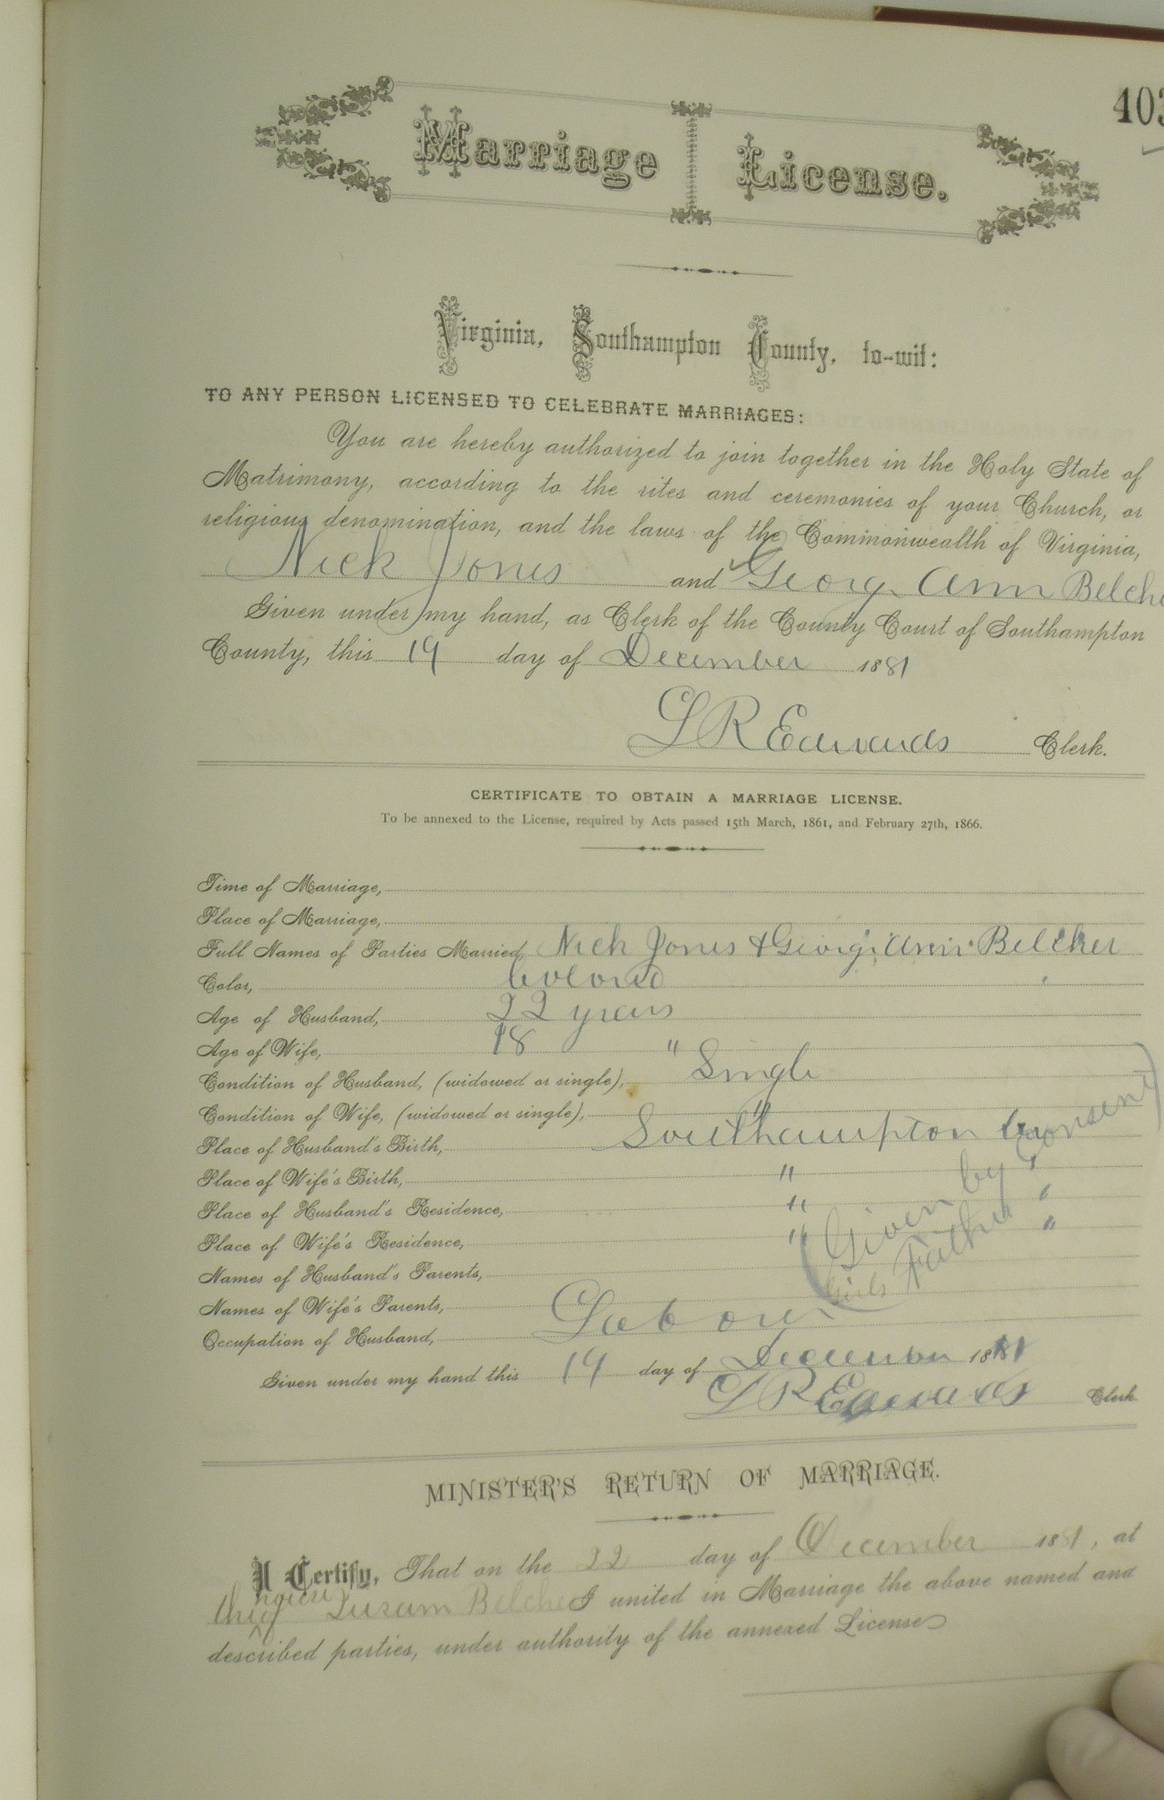 403
Marriage License.
Virginia, Southampton County, to-wit:
TO ANY PERSON LICENSED TO CELEBRATE MARRIAGES:
You are hereby authorized to join together in the Holy State of
Matrimony, according to the rites and ceremonies of your Church, or
religious denomination, and the laws of the Commonwealth of Virginia,
Nick Jones and Georg Ann Belche
Given under my hand, as Clerk of the County Court of Southampton
County, this 19 day of December 1881
L R Edwards Clerk.
CERTIFICATE TO OBTAIN A MARRIAGE LICENSE.
To be annexed to the License, required by Acts passed 15th March, 1861, and February 27th, 1866.
Time of Marriage,
Place of Marriage,
Full Names of Parties Married, Nick Jones & Georgi Ann Belcher
Color, Colored
Age of Husband, 22 years
Age of Wife, 18 "
Condition of Husband, (widowed or single), Single
Condition of Wife, (widowed or single), "
Place of Husband's Birth, Southampton Co
Place of Wife's Birth, " "
Place of Husband's Residence, " "
Place of Wife's Residence, " "
(Given by Consent
Girls Father)
Names of Husband's Parents,
Names of Wife's Parents,
Occupation of Husband, Laborer
Given under my hand this 19 day of December 1881
L R Edwards Clerk
MINISTER'S RETURN OF MARRIAGE.
I Certify, That on the 22 day of December 1881, at
the house Belcher I united in Marriage the above named and
described parties, under authority of the annexed License